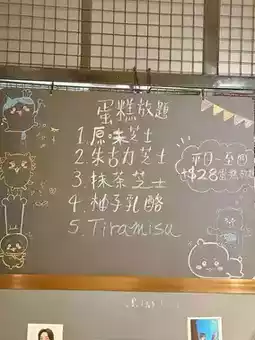 蛋糕放題
1. 原味芝士
2. 朱古力芝士
3. 抹茶芝士
4. 柚子乳酪
5. Tiramisu
平日一至四
+$28蛋糕放題